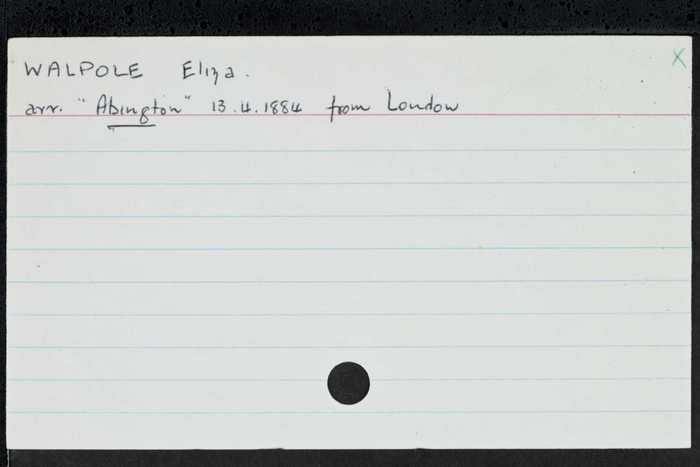 X
WALPOLE Eliza.
arr. "Abington" 13.4.1884 from London